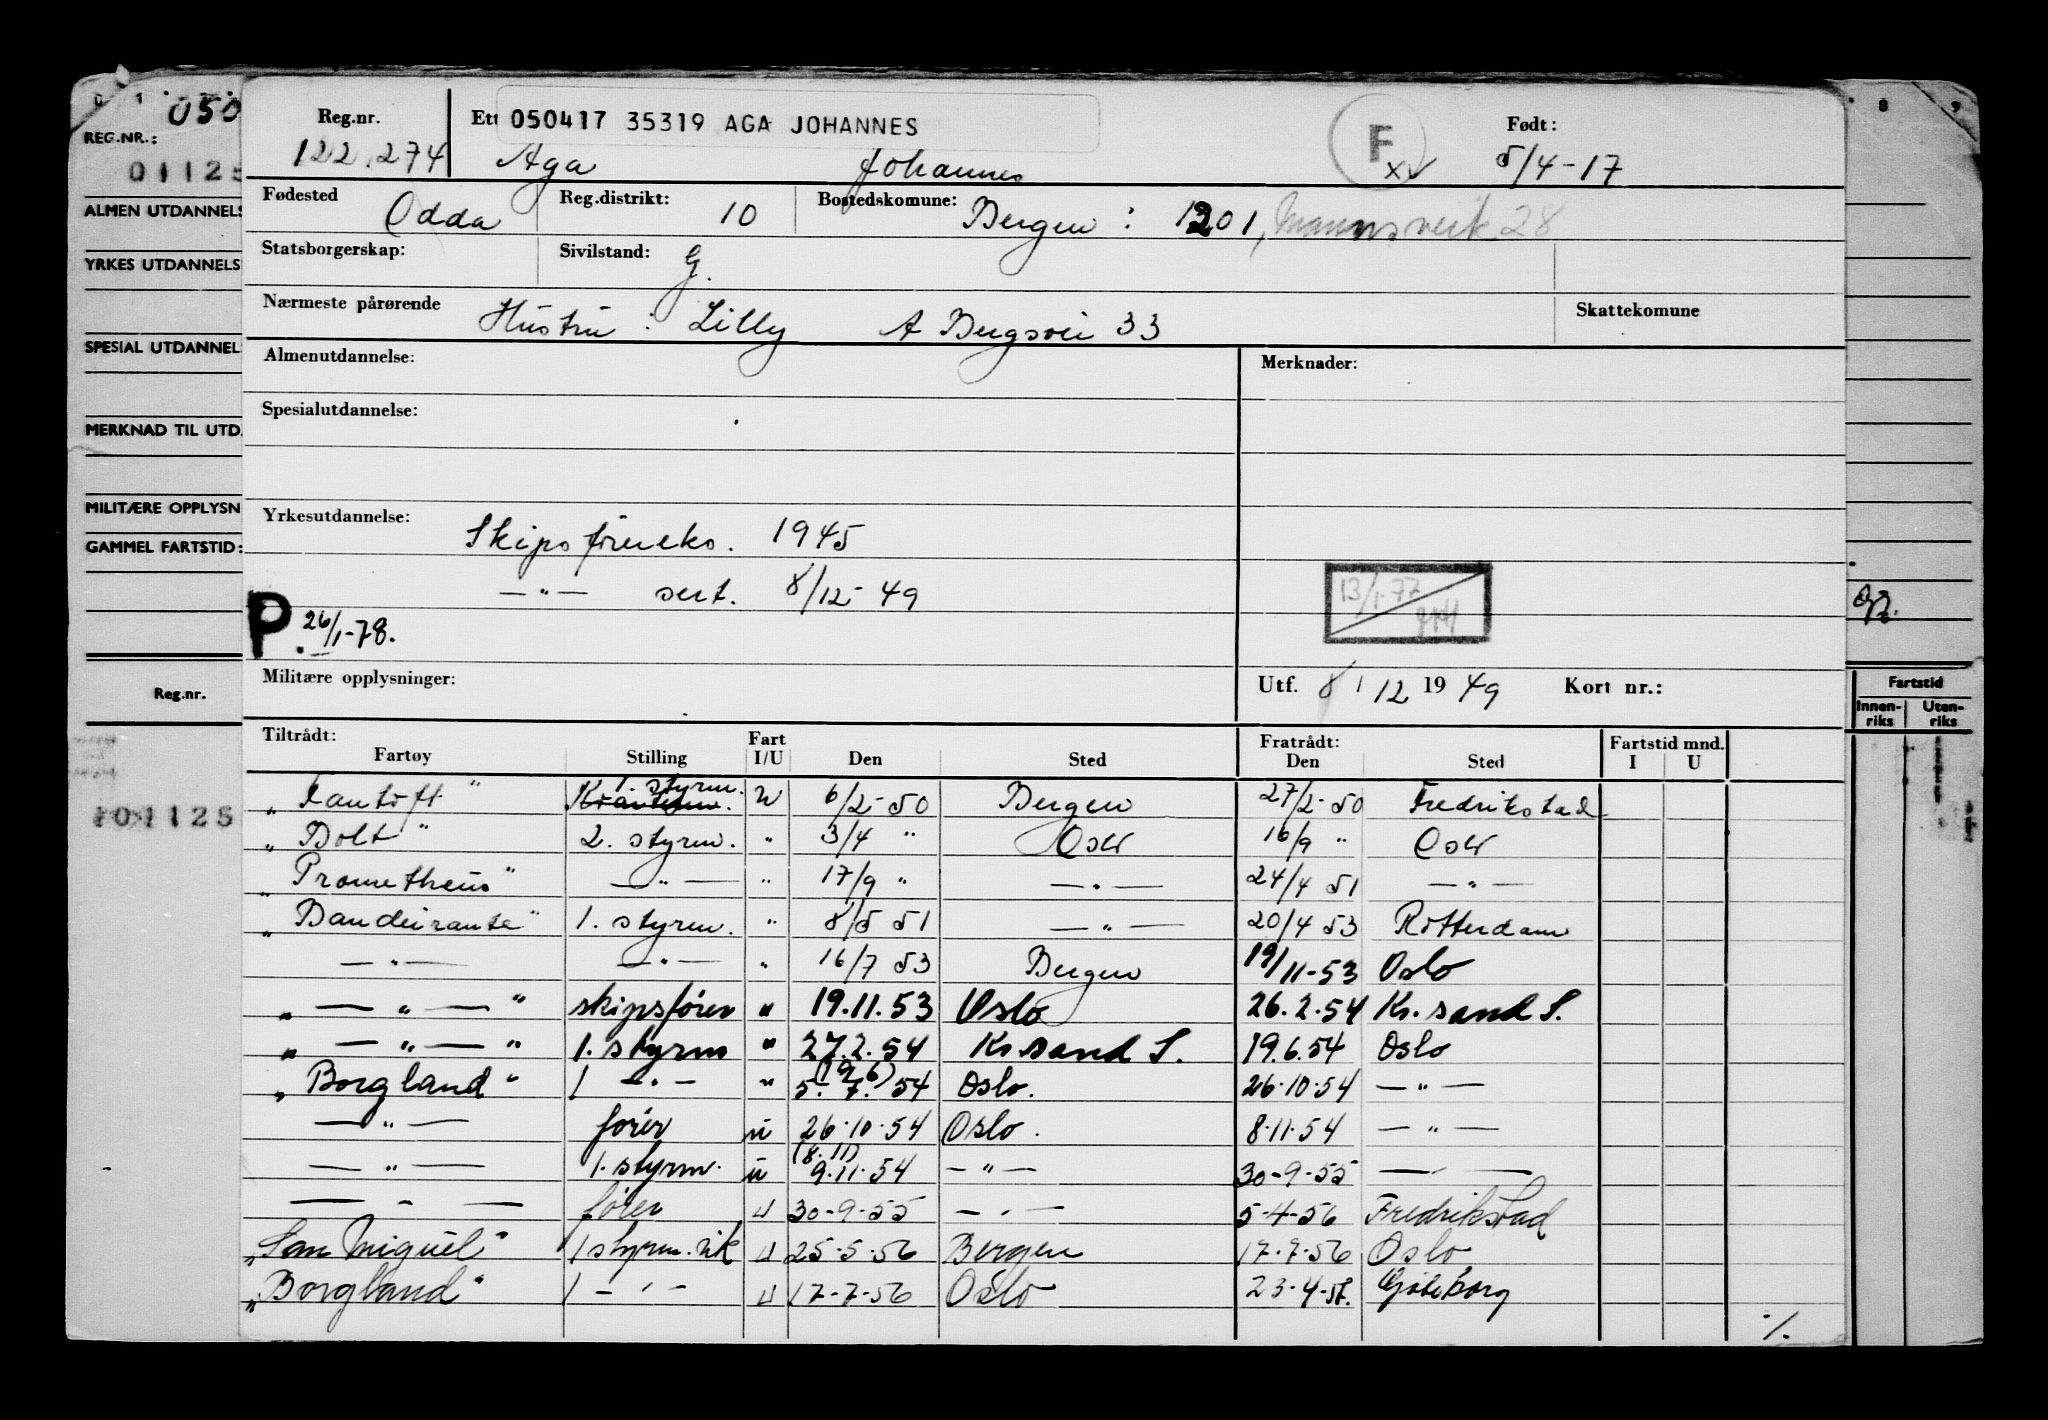 0 1 8 9
050
REG.NR.:
01125
ALMEN UTDANNELS
YRKES UTDANNELS
SPESIAL UTDANNEL
MERKNAD TIL UTD.
MILITÆRE OPPLYSN
GAMMEL FARTSTID:
Reg.nr.
101125
Fartstid
Innen-riks Uten-riks
Reg.nr. Ett 050417 35319 AGA JOHANNES F Født:
122.274 Aga Johannes x✓ 5/4-17
Fødested Odda Reg.distrikt: 10 Bostedskomune: Bergen : 1201, Mannsverk 28
Statsborgerskap: Sivilstand: G.
Nærmeste pårørende Hustru : Lilly A Bergsvei 33 Skattekomune
Almenutdannelse: Merknader:
Spesialutdannelse:
Yrkesutdannelse: Skipsføreeks. 1945
— " — sert. 8/12- 49
13/1-77
P. 26/1-78.
Militære opplysninger: Utf. 8 / 12 19 49 Kort nr.:
Tiltrådt: Fratrådt: Fartstid mnd.
Fartøy Stilling Fart I/U Den Sted Den Sted I U
1. styrm.
„ Fantoft " U 6/2-50 Bergen 27/2-50 Fredrikstad
„ Bolt " 2. styrm. " 3/4 " Oslo 16/9 " Oslo
„ Prometheus " — " — " 17/9 " — " — 24/4 51 — " —
„ Bandeirante " 1. styrm. " 8/5 51 — " — 20/4 53 Rotterdam
— " — — " — " 16/7 53 Bergen 19/11-53 Oslo
„ — " — " skipsfører " 19.11.53 Oslo 26.2.54 Kr.sand S.
„ — " — " 1. styrm " 27.2.54 Kr.sand S. 19.6.54 Oslo
(19.6)
„ Borgland " 1 — " — " 5.7.54 Oslo. 26.10.54 — " —
— " — fører u 26.10.54 Oslo. 8.11.54 — " —
(8.11)
— " — 1. styrm. u 9.11.54 — " — 30-9-55 — " —
— " — fører U 30-9-55 — " — 5-4-56 Fredrikstad
„ San Miguel " 1 styrm. vik U 25-5-56 Bergen 17-7-56 Oslo
„ Borgland " 1 — " — U 17-7-56 Oslo 23-4-57. Göteborg
./.